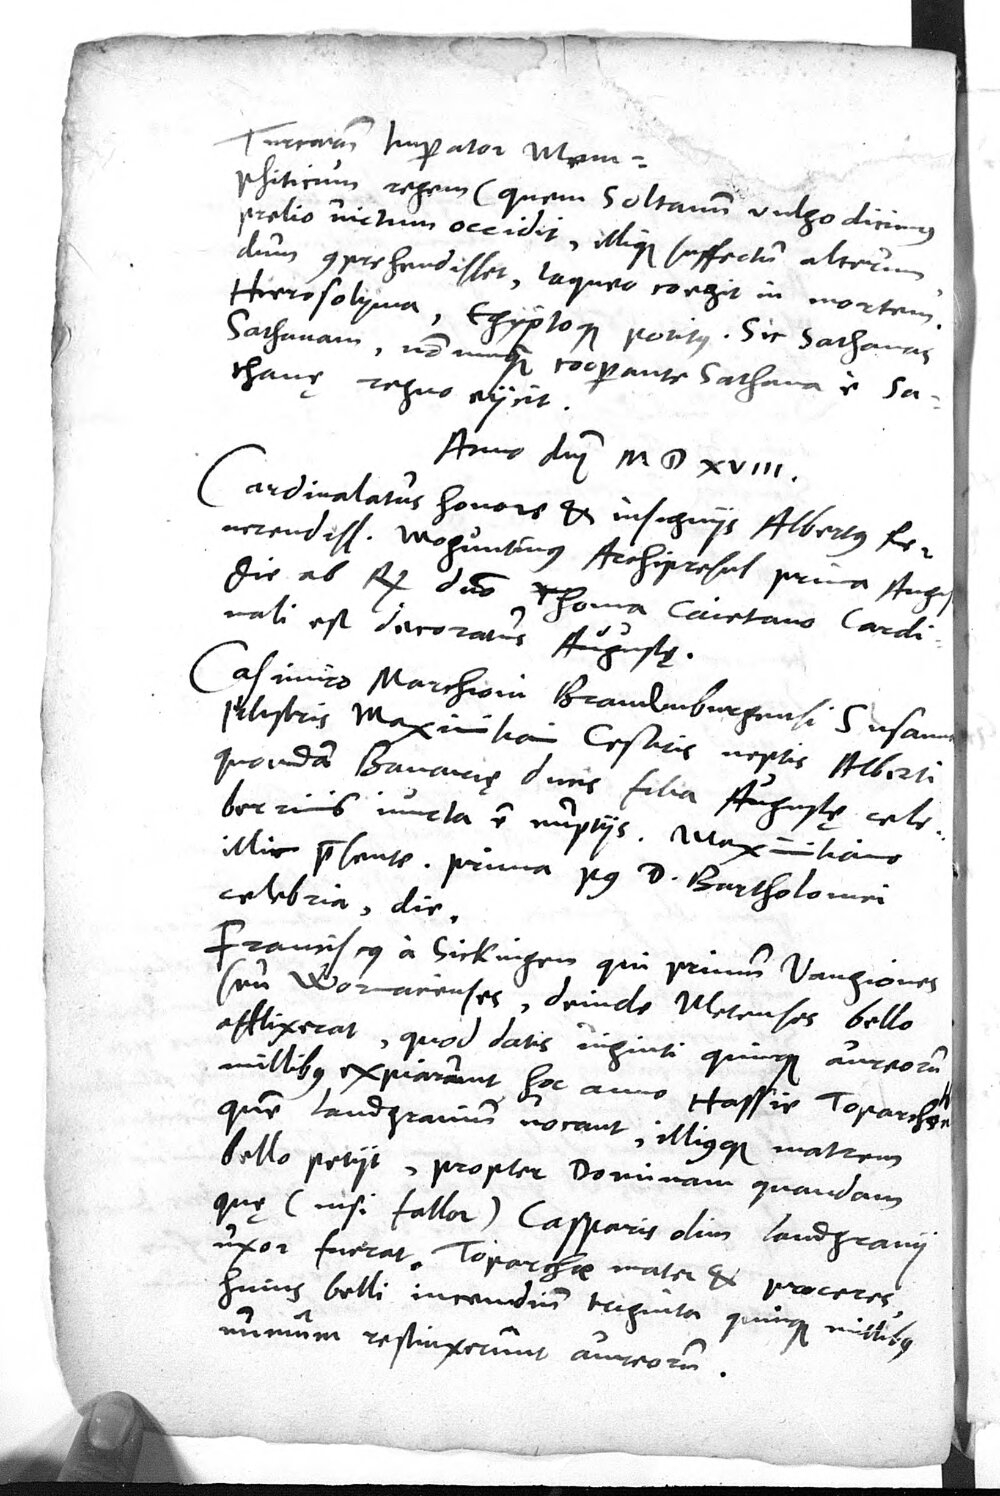 Turcarū Imꝑator Mem=
phiticum regem (quem Soltanū vulgo dicimꝰ
prelio victum occidit, illiqꝫ suffectū alterum
dum ꝯprehendisset, laqueo coegit in mortem.
Hierosolyma, Egyptoqꝫ potitꝰ. Sic Sathanas
Sathanam, nō nunqꝫ cooꝑante Sathana è Sa=
thanę regno eijcit.
Anno dn̄j M D XVIII.
Cardinalatus honore & insignijs Albertꝰ Re=
uerendiss. Moguntinꝰ Archipresul prima Augus
die ab R dn̄o Thoma Caietano Cardi=
nali est decoratus Augustę.
Casimiro Marchioni Brandenburgensi Susanna
Illustris Maximiliani Cesaris neptis Alberti
quondā Bauarię ducis filia Augustę cele=
berrimis iuncta ē nuptijs. Maximiliano
illic p̄sente. prima pꝰ D. Bartholomei
celebria, die.
Franciscꝰ à Sickingen qui primū Vangiones
seu Wormacienses, deinde Metenses bello
afflixerat, quod datis uiginti quinqꝫ aureorū
millibꝰ expiarunt hoc anno Hassie Toparchen
quē landgrauiū uocant, illiꝰqꝫ matrem
bello petijt, propter Dominam quandam
quę (nisi fallor) Casparis olim landgrauij
uxor fuerat. Toparchæ mater & proceres,
huius belli incendiū triginta quinqꝫ millibꝰ
nummum restinxerunt aureorū.